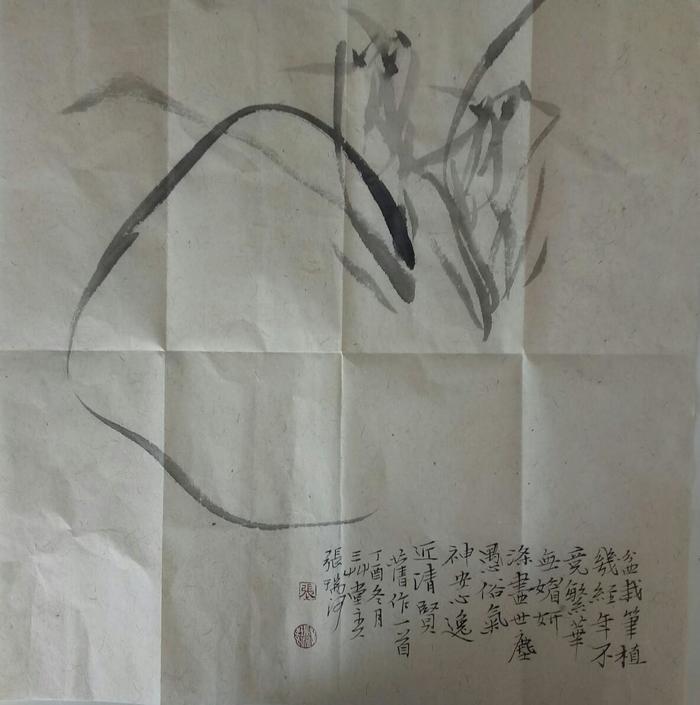 盆栽筆植
幾經年不
競繁華
無媚妍
滌盡世塵
愚俗氣
神安心逸
近清賢
作一首
丁酉冬月
堂主
張瑞河
張